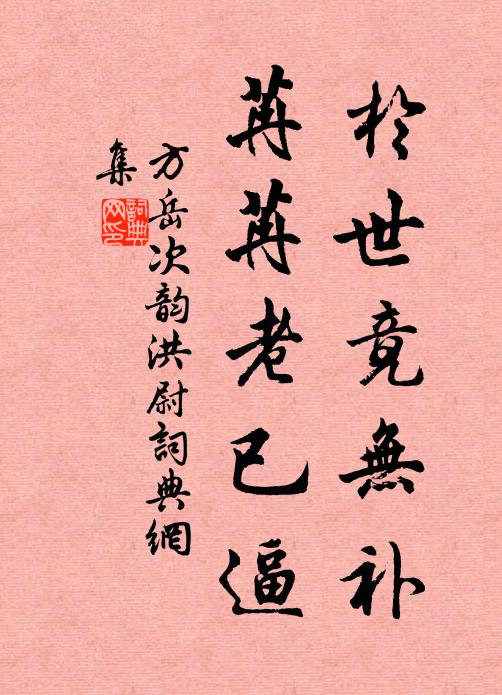 於世竟無补
苒苒老已逼
方岳次韵洪尉詞典網
集
詞典网印